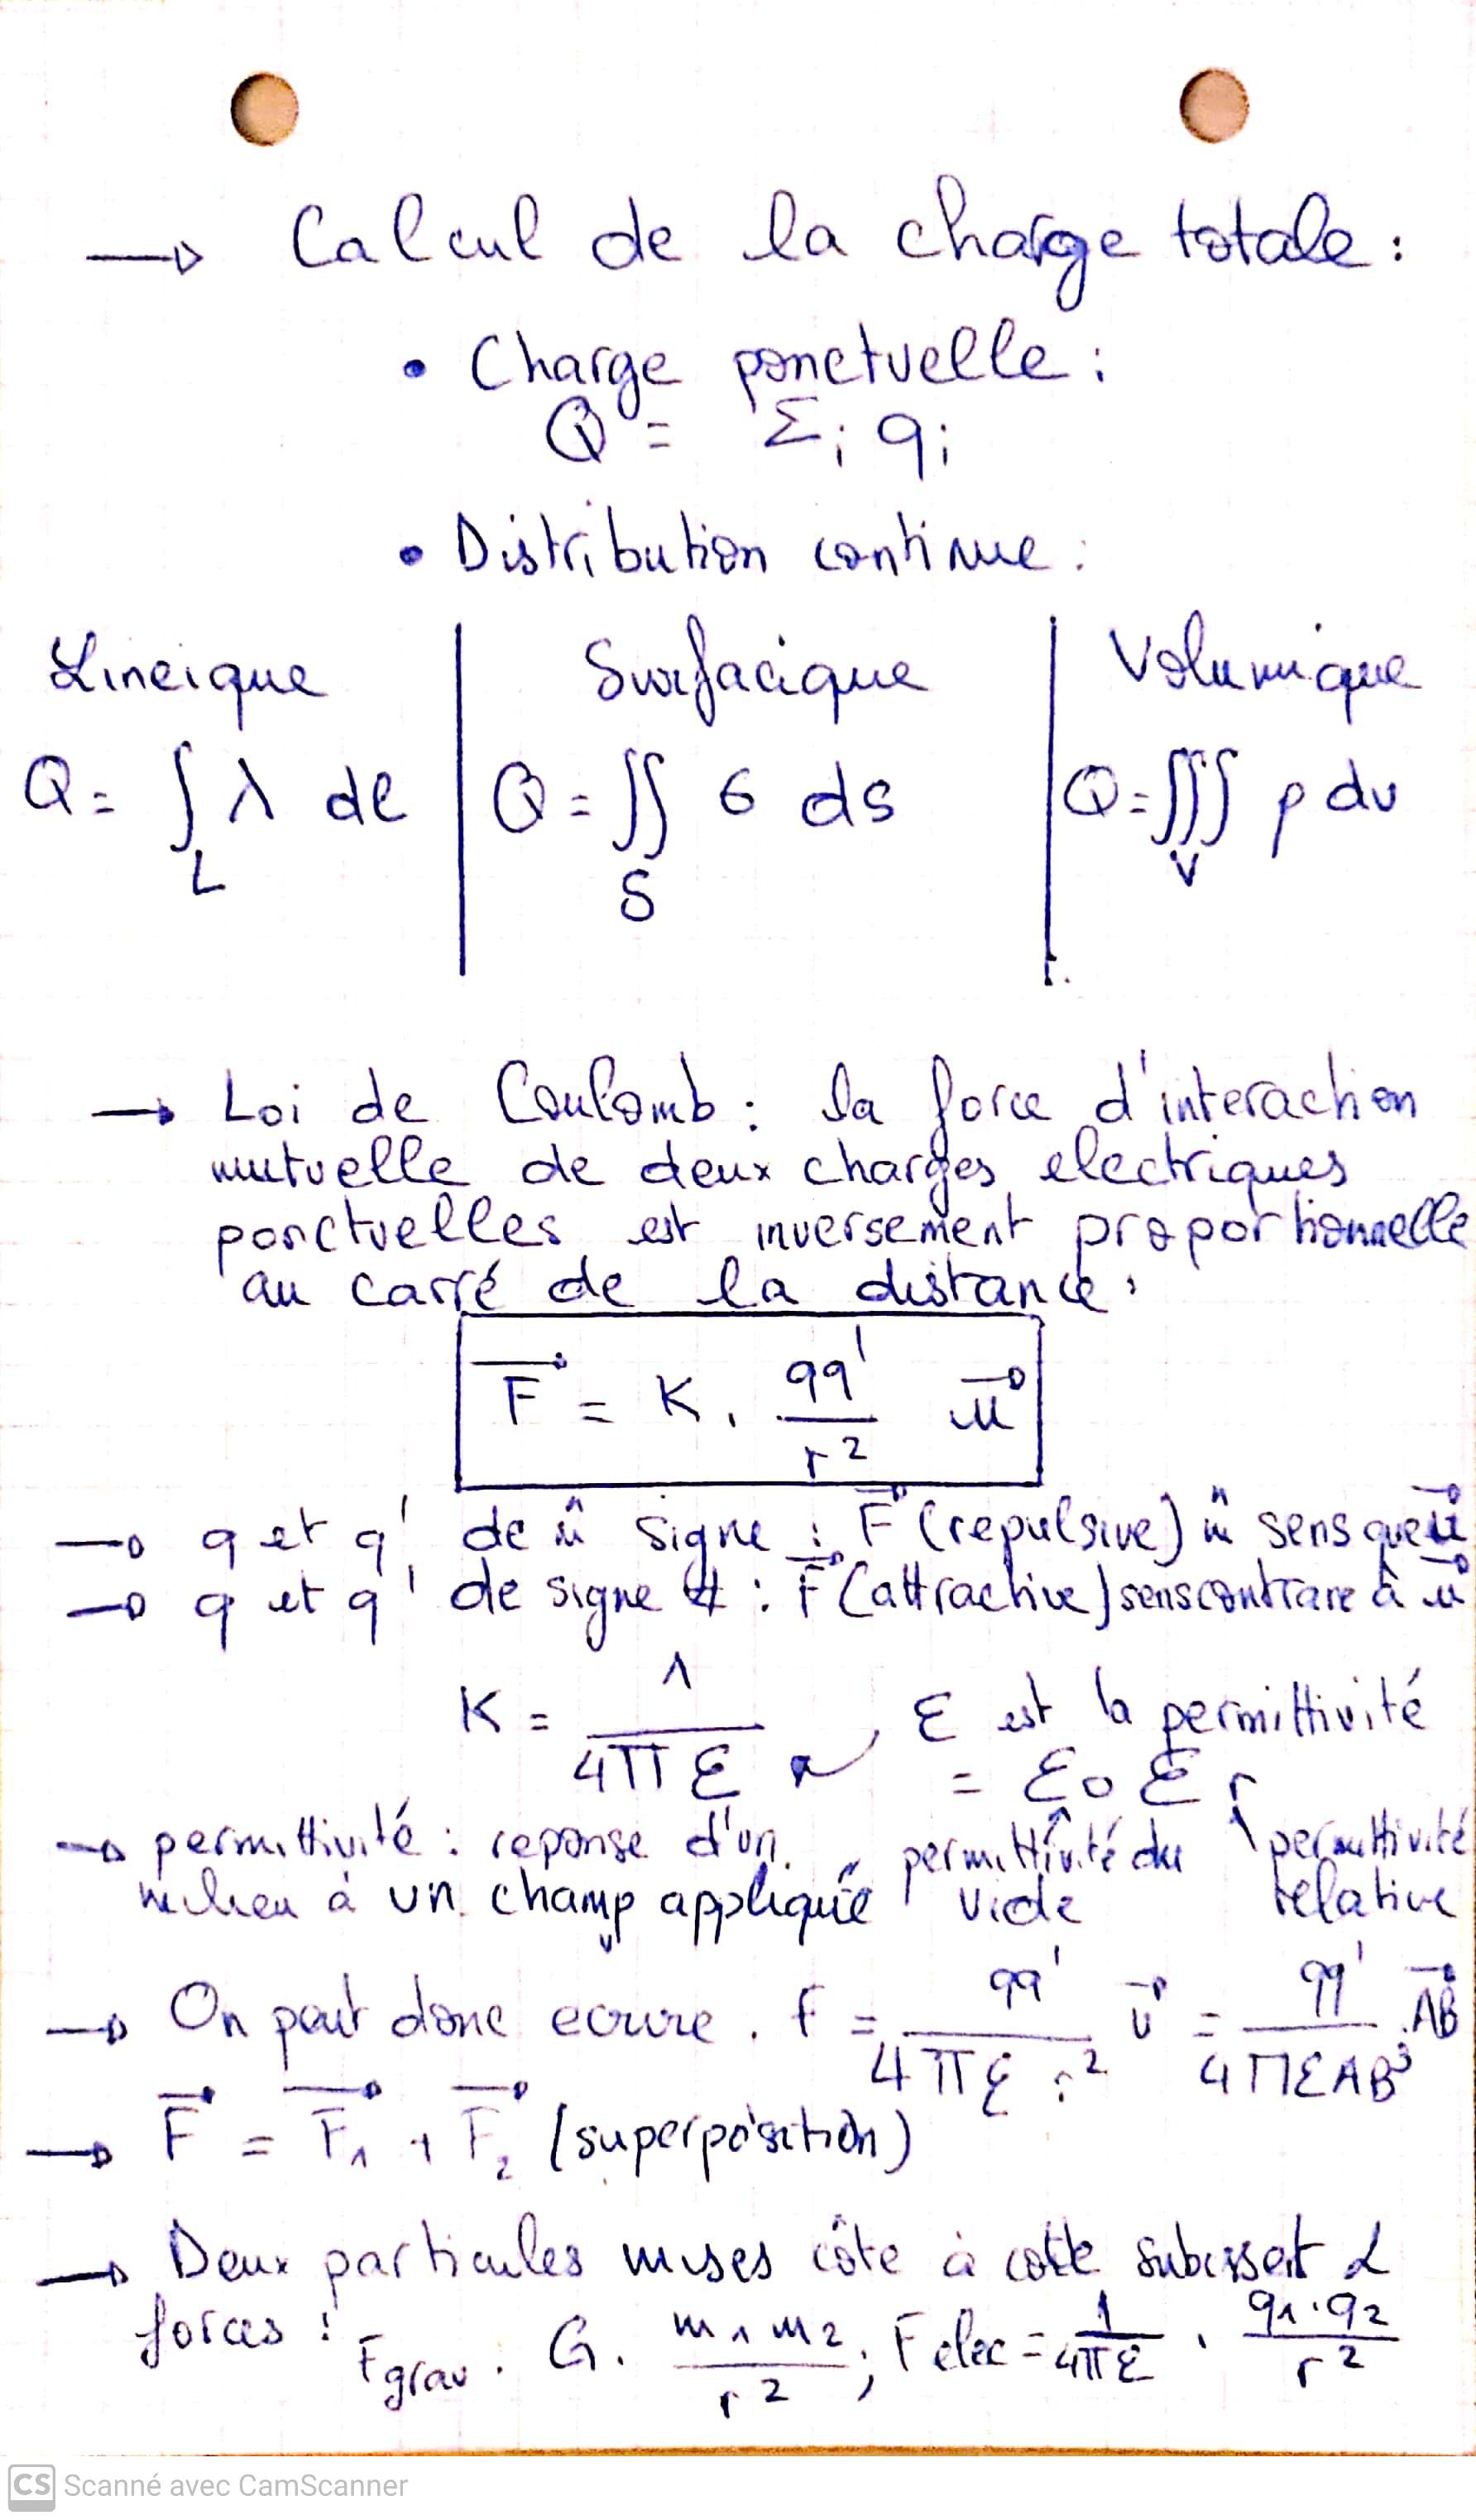 → Calcul de la charge totale :
• Charge ponctuelle :
Q = Σi qi
• Distribution continue :
Lineique | Surfacique | Volumique
Q = ∫L λ dl | Q = ∬S σ ds | Q = ∭V ρ dv
→ Loi de Coulomb : la force d'interaction
mutuelle de deux charges electriques
ponctuelles est inversement proportionnelle
au carré de la distance.
F⃗ = K . qq'/r² u⃗
→ q et q' de m̂ signe : F⃗ (repulsive) m̂ sens que u⃗
→ q et q' de signe ≠ : F⃗ (attractive) sens contraire à u⃗
K = 1/4πε , ε est la permittivité
= ε0 εr
→ permittivité : reponse d'un
milieu à un champ appliqué
permittivité du vide
permittivité relative
→ On peut donc ecrire . F = qq'/4πε r² u⃗ = qq'/4πεAB³ . AB⃗
→ F⃗ = F⃗1 + F⃗2 (superposition)
→ Deux particules mises côte à cote subissent 2
forces : Fgrav . G . m1 m2/r² ; Felec = 1/4πε . q1.q2/r²
CS Scanné avec CamScanner